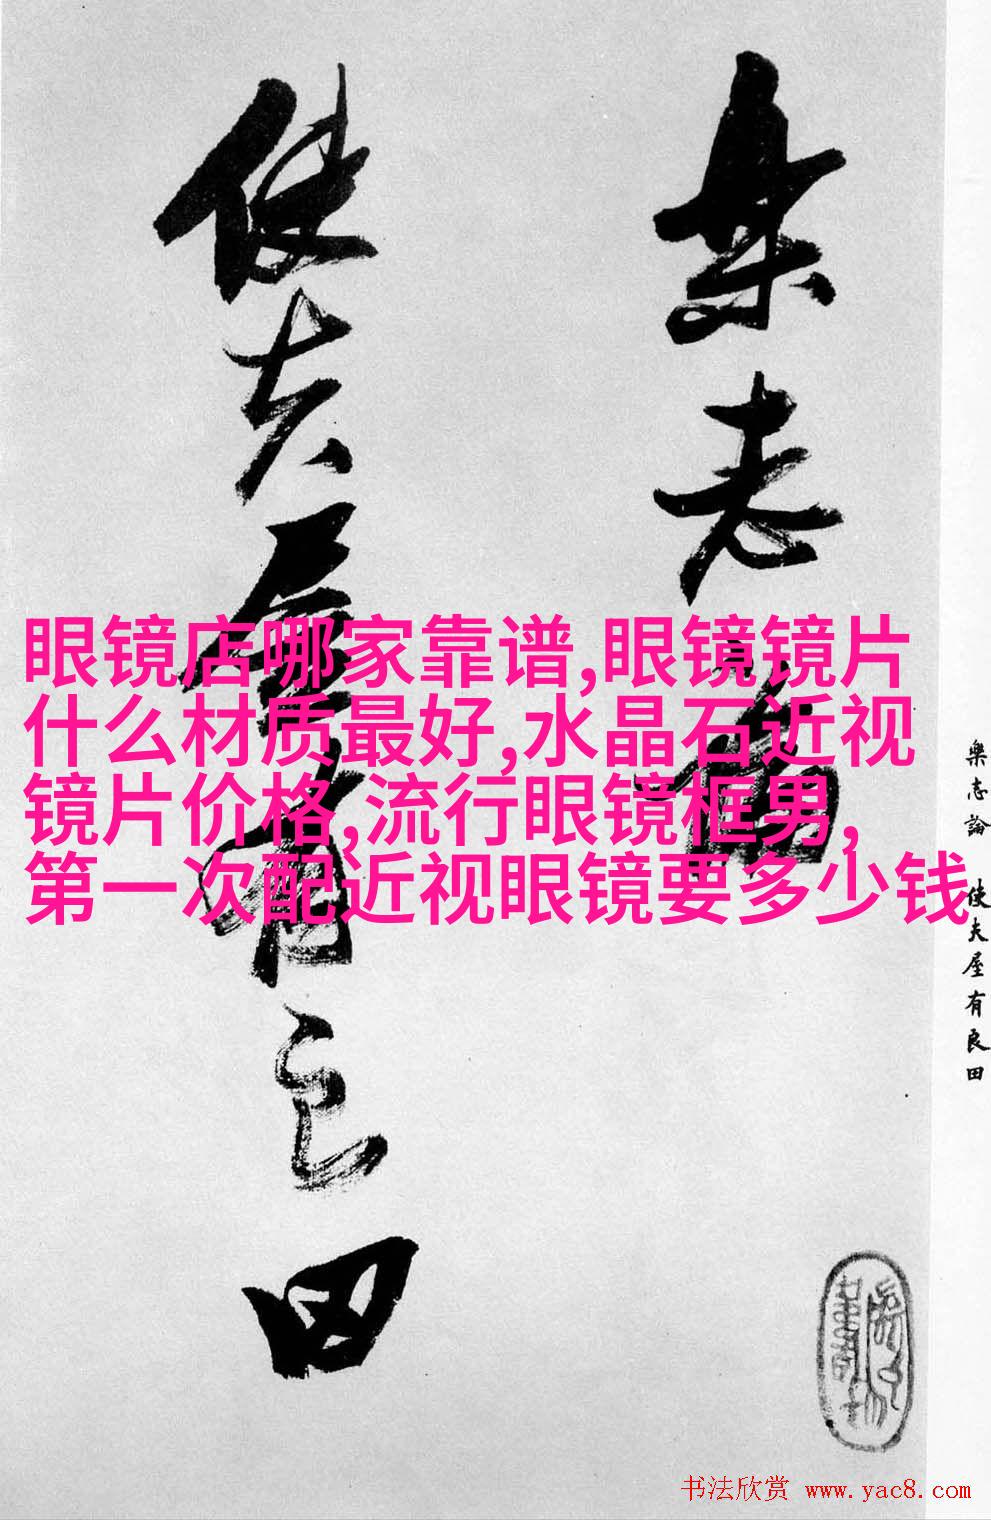 樂志論
使夫屋有良田
眼镜店哪家靠谱,眼镜镜片
什么材质最好,水晶石近视
镜片价格,流行眼镜框男,
第一次配近视眼镜要多少钱
樂志論 使夫屋有良田
书法欣赏 www.yac8.com